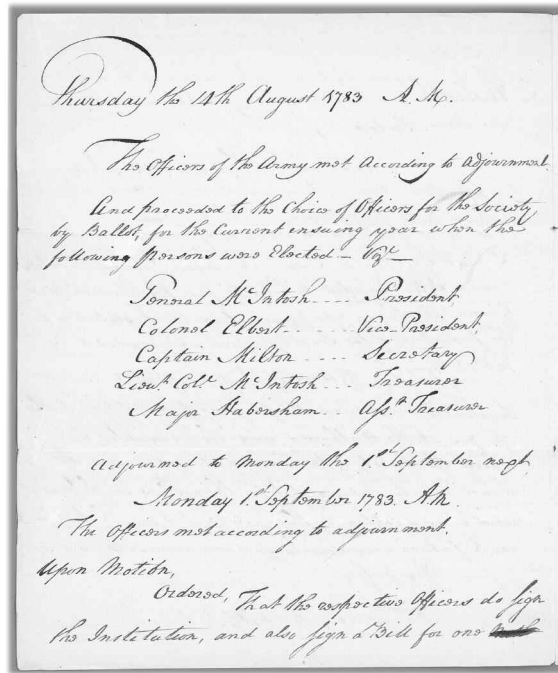 Thursday the 14th August 1783 A.M.
The Officers of the Army met According to Adjournment.
And proceeded to the Choice of Officers for the Society
by Ballot, for the Current ensuing year when the
following persons were Elected — Vizt —
General McIntosh .... President
Colonel Elbert ..... Vice-President
Captain Milton .... Secretary
Lieut. Coll. McIntosh ... Treasurer
Major Habersham .. Asst. Treasurer
Adjourned to Monday the 1st. September next.
Monday 1st September 1783. A.M.
The Officers met according to adjournment.
Upon Motion,
Ordered, That the respective Officers do sign
the Institution, and also sign a Bill for one